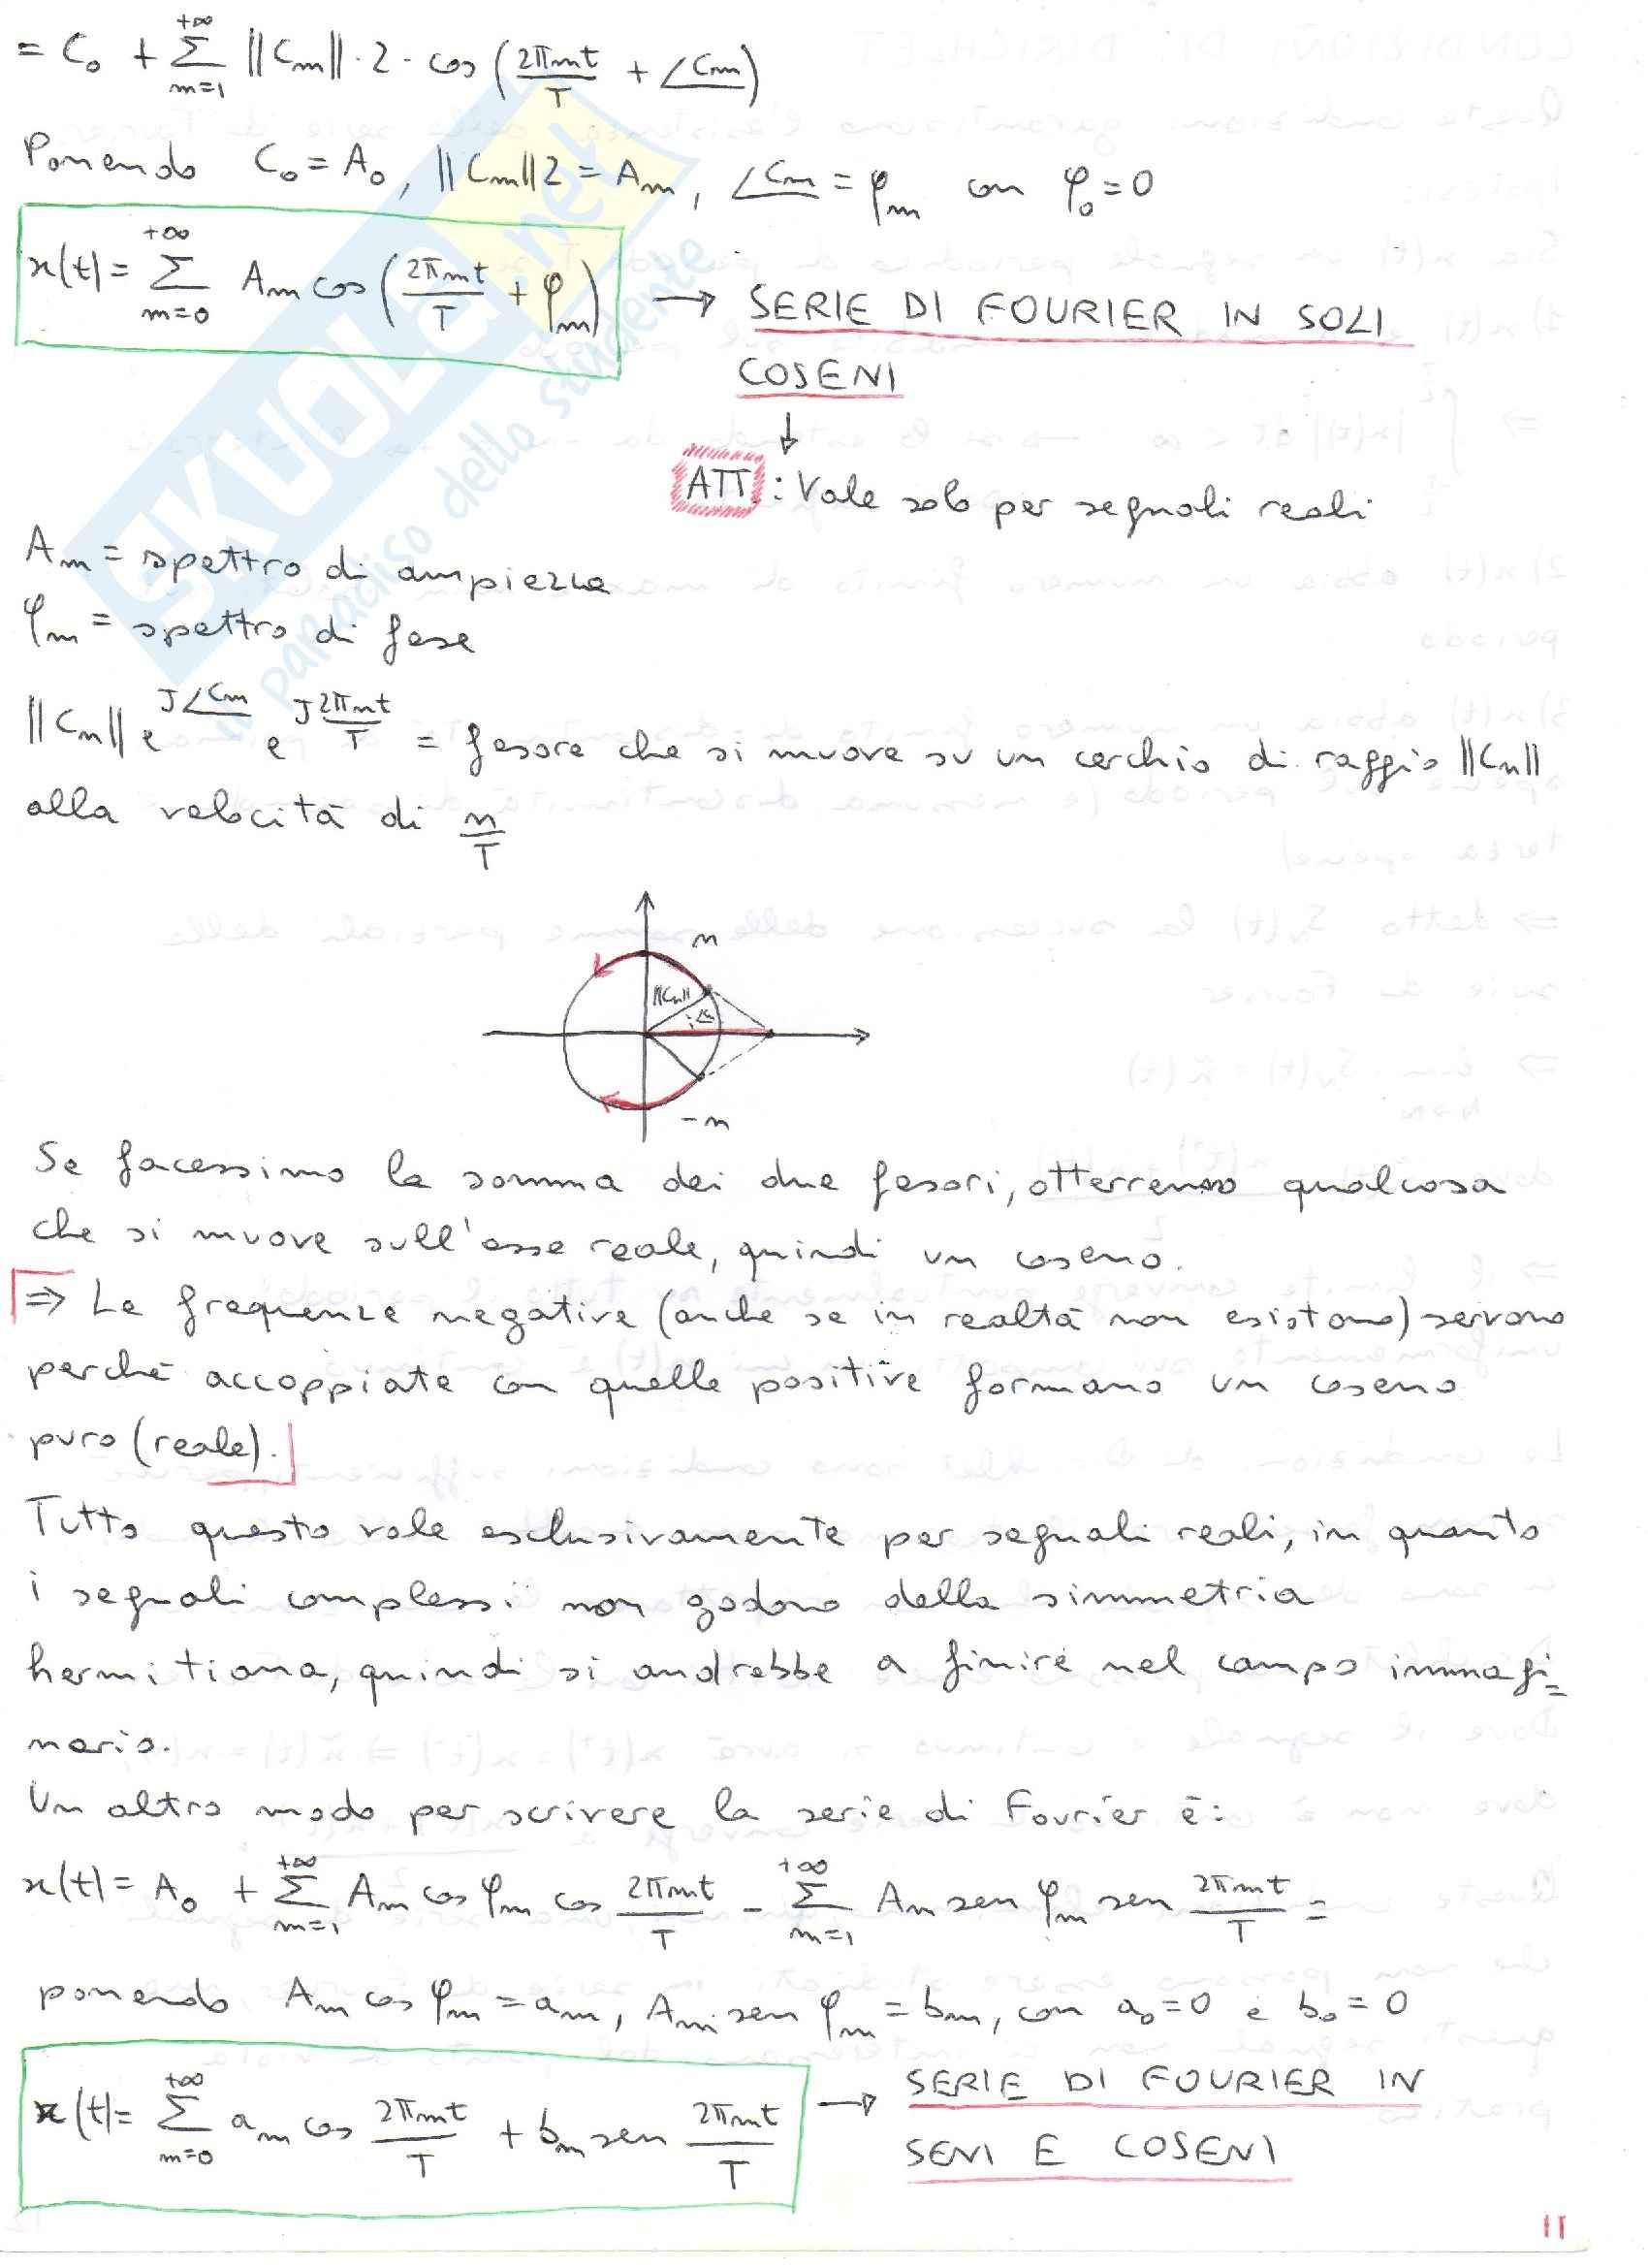 = C₀ + Σ_{n=1}^{+∞} ‖Cn‖ · 2 · cos (2πnt/T + ∠Cn)
Ponendo C₀ = A₀, ‖Cn‖2 = An, ∠Cn = φn con φ₀ = 0
x(t) = Σ_{n=0}^{+∞} An cos (2πnt/T + φn) → SERIE DI FOURIER IN SOLI
COSENI
↓
ATT : Vale solo per segnali reali
An = spettro di ampiezza
φn = spettro di fase
‖Cn‖ e^{J∠Cn} e^{J2πnt/T} = fasore che si muove su un cerchio di raggio ‖Cn‖
alla velocità di n/T
n
‖Cn‖
-n
Se facessimo la somma dei due fasori, otterremo qualcosa
che si muove sull'asse reale, quindi un coseno.
⇒ Le frequenze negative (anche se in realtà non esistono) servono
perché accoppiate con quelle positive formano un coseno
puro (reale).
Tutto questo vale esclusivamente per segnali reali, in quanto
i segnali complessi non godono della simmetria
hermitiana, quindi si andrebbe a finire nel campo immagi=
nario.
Un altro modo per scrivere la serie di Fourier è:
x(t) = A₀ + Σ_{n=1}^{+∞} An cos φn cos 2πnt/T - Σ_{n=1}^{+∞} An sen φn sen 2πnt/T =
ponendo An cos φn = an, An sen φn = bn, con a₀ = 0 e b₀ = 0
x(t) = Σ_{n=0}^{+∞} an cos 2πnt/T + bn sen 2πnt/T → SERIE DI FOURIER IN
SENI E COSENI
11
SKUOLA.net
il paradiso dello studente